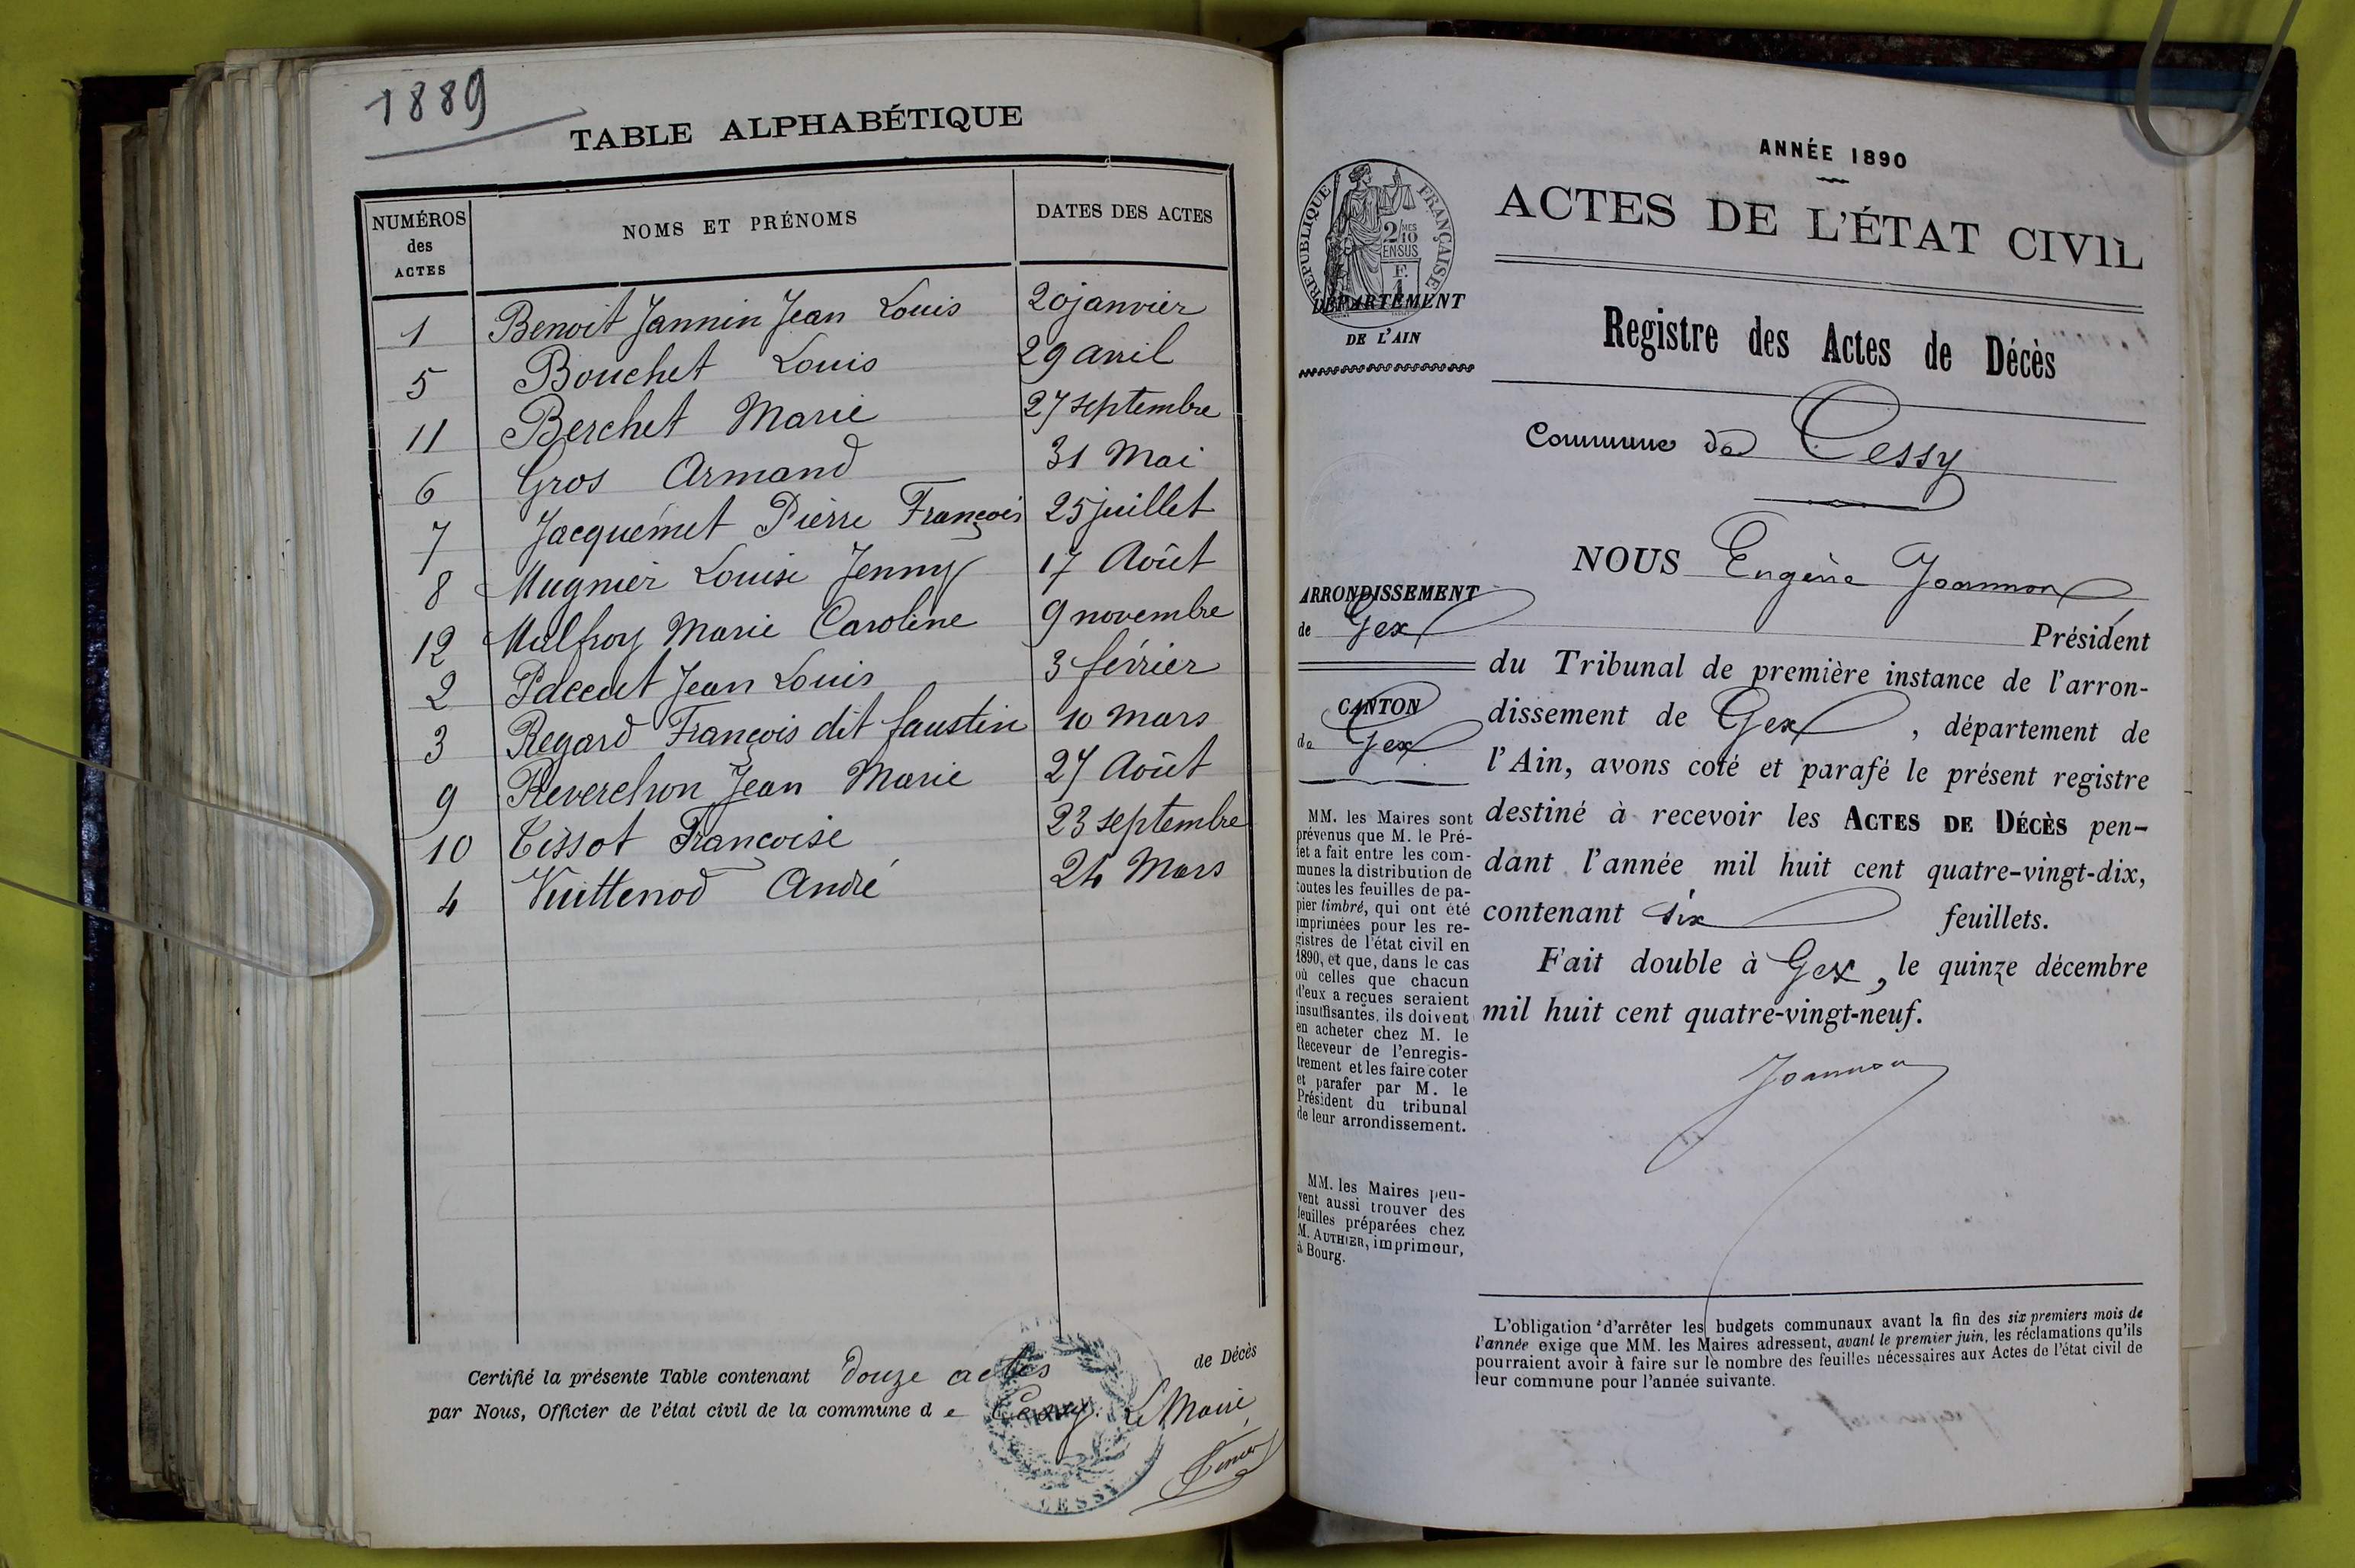 1889
TABLE ALPHABÉTIQUE
NUMÉROS des ACTES NOMS ET PRÉNOMS DATES DES ACTES
1 Benoit Jannin Jean Louis 20 janvier
5 Bouchet Louis 29 avril
11 Berchet Marie 27 septembre
6 Gros Armand 31 Mai
7 Jacquemet Pierre François 25 juillet
8 Mugnier Louise Jenny 17 Août
12 Malfroy Marie Caroline 9 novembre
2 Paccut Jean Louis 3 février
3 Regard François dit faustin 10 mars
9 Reverchon Jean Marie 27 Août
10 Tissot Françoise 23 septembre
4 Vuittenod André 24 Mars
Certifié la présente Table contenant douze actes de Décès
par Nous, Officier de l'état civil de la commune de Cessy. Le Maire
CESSY
ANNÉE 1890
ACTES DE L'ÉTAT CIVIL
RÉPUBLIQUE FRANÇAISE
2/10 MES
EN SUS
F.
1
DÉPARTEMENT
DE L'AIN
Registre des Actes de Décès
Commune de Cessy
ARRONDISSEMENT
de Gex
CANTON
de Gex
MM. les Maires sont
prévenus que M. le Pré-
fet a fait entre les com-
munes la distribution de
toutes les feuilles de pa-
pier timbré, qui ont été
imprimées pour les re-
gistres de l'état civil en
1890, et que, dans le cas
où celles que chacun
d'eux a reçues seraient
insuffisantes, ils doivent
en acheter chez M. le
Receveur de l'enregis-
trement et les faire coter
et parafer par M. le
Président du tribunal
de leur arrondissement.
MM. les Maires peu-
vent aussi trouver des
feuilles préparées chez
M. AUTHIER, imprimeur,
à Bourg.
NOUS Eugène Joannon
Président
du Tribunal de première instance de l'arron-
dissement de Gex, département de
l'Ain, avons coté et parafé le présent registre
destiné à recevoir les ACTES DE DÉCÈS pen-
dant l'année mil huit cent quatre-vingt-dix,
contenant six feuillets.
Fait double à Gex, le quinze décembre
mil huit cent quatre-vingt-neuf.
Joannon
L'obligation d'arrêter les budgets communaux avant la fin des six premiers mois de
l'année exige que MM. les Maires adressent, avant le premier juin, les réclamations qu'ils
pourraient avoir à faire sur le nombre des feuilles nécessaires aux Actes de l'état civil de
leur commune pour l'année suivante.